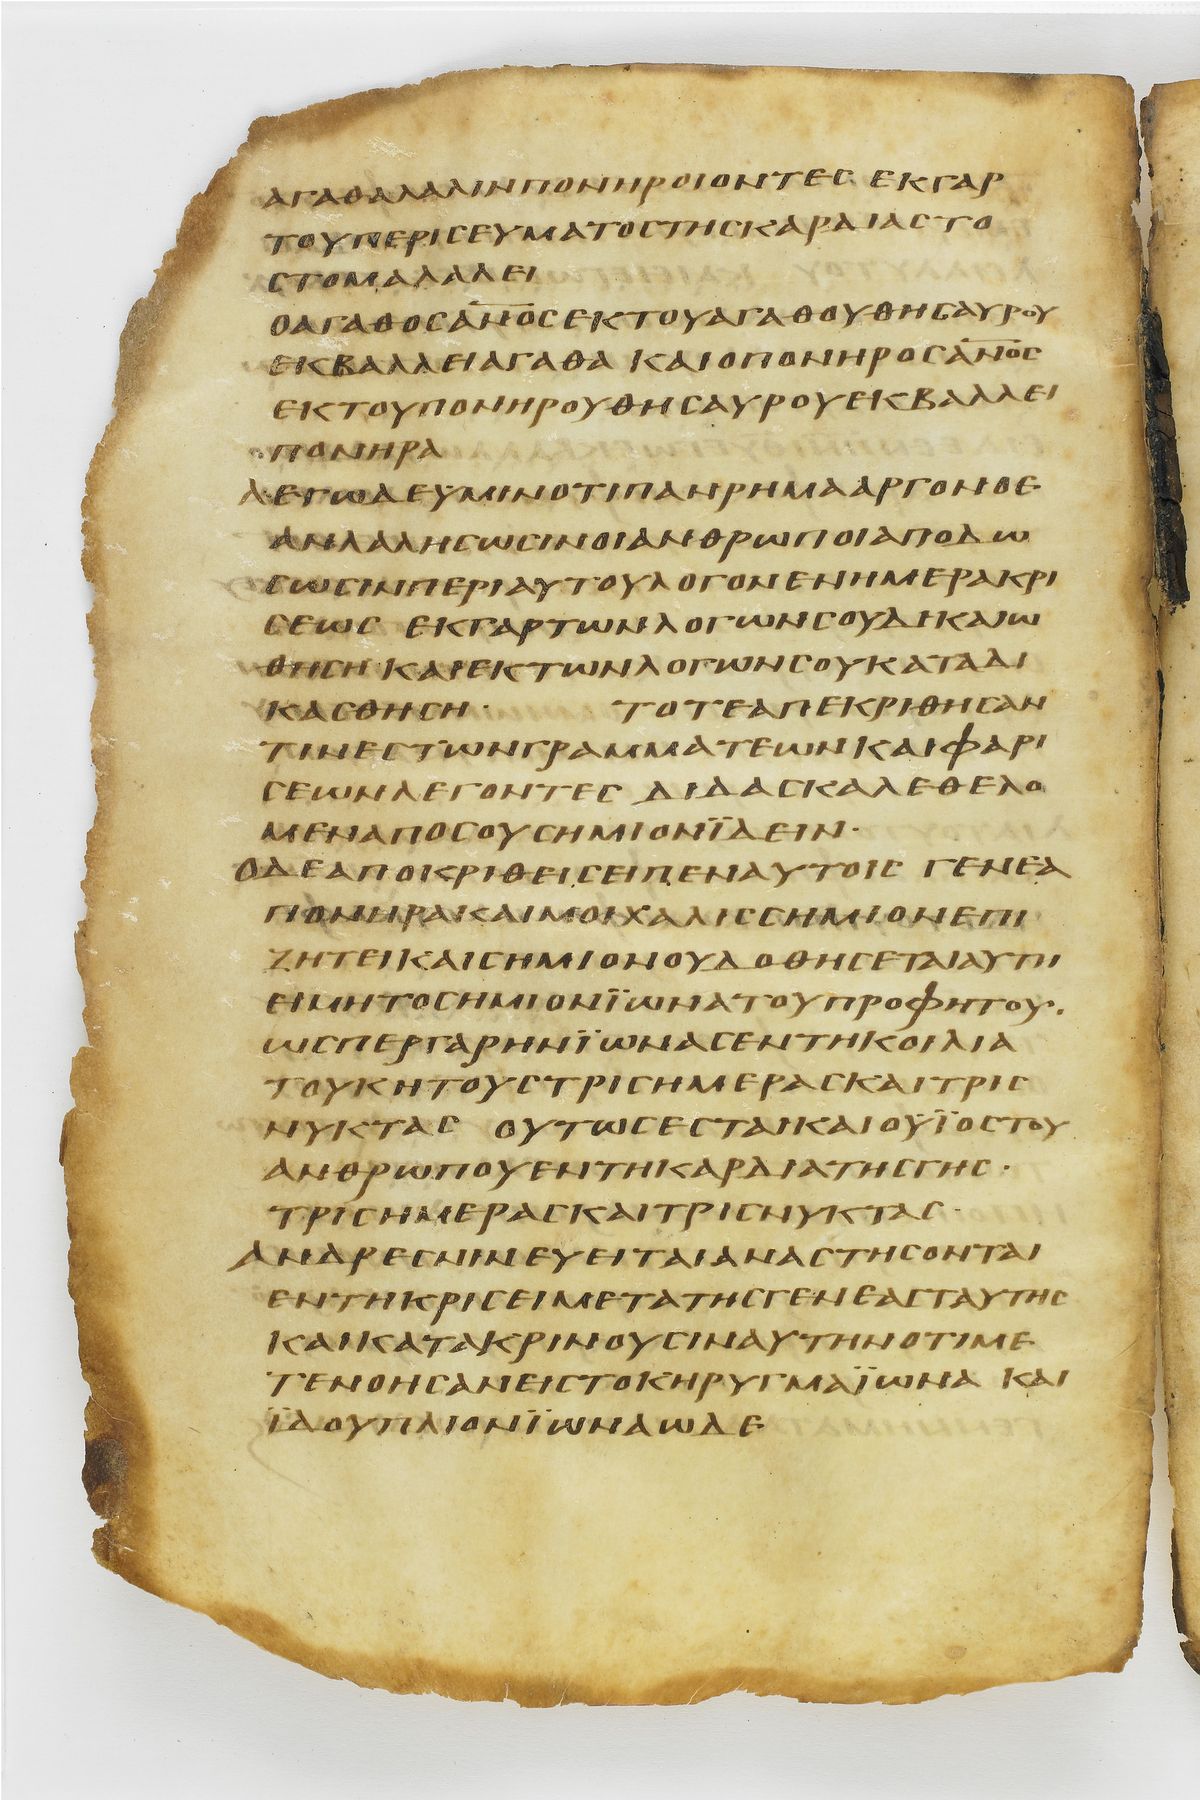 ΑΓΑΘΑΛΑΛΙΝΠΟΝΗΡΟΙΟΝΤΕΣ ΕΚΓΑΡ
ΤΟΥΠΕΡΙΣΕΥΜΑΤΟΣΤΗΣΚΑΡΔΙΑΣΤΟ
ΣΤΟΜΑΛΑΛΕΙ
ΟΑΓΑΘΟΣΑ̅Ν̅Ο̅ΣΕΚΤΟΥΑΓΑΘΟΥΘΗΣΑΥΡΟΥ
ΕΚΒΑΛΛΕΙΑΓΑΘΑ ΚΑΙΟΠΟΝΗΡΟΣΑ̅Ν̅Ο̅Σ
ΕΚΤΟΥΠΟΝΗΡΟΥΘΗΣΑΥΡΟΥΕΚΒΑΛΛΕΙ
ΠΟΝΗΡΑ
ΛΕΓΩΔΕΥΜΙΝΟΤΙΠΑΝΡΗΜΑΑΡΓΟΝΟΕ
ΑΝΛΑΛΗΣΩΣΙΝΟΙΑΝΘΡΩΠΟΙΑΠΟΔΩ
ΣΩΣΙΝΠΕΡΙΑΥΤΟΥΛΟΓΟΝΕΝΗΜΕΡΑΚΡΙ
ΣΕΩΣ ΕΚΓΑΡΤΩΝΛΟΓΩΝΣΟΥΔΙΚΑΙΩ
ΘΗΣΗ·ΚΑΙΕΚΤΩΝΛΟΓΩΝΣΟΥΚΑΤΑΔΙ
ΚΑΣΘΗΣΗ· ΤΟΤΕΑΠΕΚΡΙΘΗΣΑΝ
ΤΙΝΕΣΤΩΝΓΡΑΜΜΑΤΕΩΝΚΑΙΦΑΡΙ
ΣΕΩΝΛΕΓΟΝΤΕΣ ΔΙΔΑΣΚΑΛΕΘΕΛΟ
ΜΕΝΑΠΟΣΟΥΣΗΜΙΟΝΪΔΕΙΝ·
ΟΔΕΑΠΟΚΡΙΘΕΙΣΕΙΠΕΝΑΥΤΟΙΣ ΓΕΝΕΑ
ΠΟΝΗΡΑΚΑΙΜΟΙΧΑΛΙΣΣΗΜΙΟΝΕΠΙ
ΖΗΤΕΙΚΑΙΣΗΜΙΟΝΟΥΔΟΘΗΣΕΤΑΙΑΥΤΗ
ΕΙΜΗΤΟΣΗΜΙΟΝΪΩΝΑΤΟΥΠΡΟΦΗΤΟΥ·
ΩΣΠΕΡΓΑΡΗΝΪΩΝΑΣΕΝΤΗΚΟΙΛΙΑ
ΤΟΥΚΗΤΟΥΣΤΡΙΣΗΜΕΡΑΣΚΑΙΤΡΙΣ
ΝΥΚΤΑΣ ΟΥΤΩΣΕΣΤΑΙΚΑΙΟΥΪΟΣΤΟΥ
ΑΝΘΡΩΠΟΥΕΝΤΗΚΑΡΔΙΑΤΗΣΓΗΣ·
ΤΡΙΣΗΜΕΡΑΣΚΑΙΤΡΙΣΝΥΚΤΑΣ·
ΑΝΔΡΕΣΝΙΝΕΥΕΙΤΑΙΑΝΑΣΤΗΣΟΝΤΑΙ
ΕΝΤΗΚΡΙΣΕΙΜΕΤΑΤΗΣΓΕΝΕΑΣΤΑΥΤΗΣ
ΚΑΙΚΑΤΑΚΡΙΝΟΥΣΙΝΑΥΤΗΝΟΤΙΜΕ
ΤΕΝΟΗΣΑΝΕΙΣΤΟΚΗΡΥΓΜΑΪΩΝΑ ΚΑΙ
ΪΔΟΥΠΛΙΟΝΪΩΝΑΩΔΕ